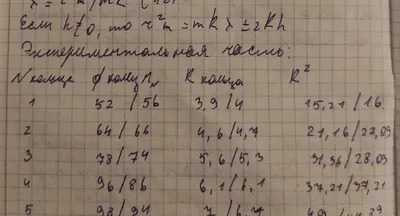 Если h≠0, то r²m = mRλ ± 2Rh
Экспериментальная часть:
N кольца R кольца R²
1 52/56 3,9/4 15,21/16
2 64/66 4,6/4,7 21,16/22,09
3 78/74 5,6/5,3 31,36/28,09
4 96/86 6,1/6,1 37,21/37,21
5 98/94